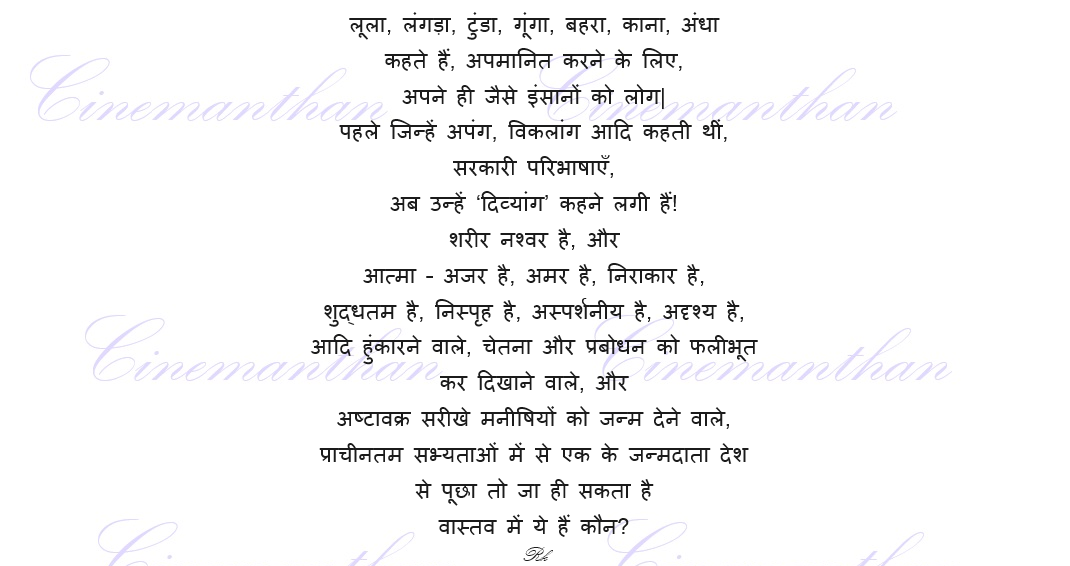 लूला, लंगड़ा, टुंडा, गूंगा, बहरा, काना, अंधा
कहते हैं, अपमानित करने के लिए,
अपने ही जैसे इंसानों को लोग|
पहले जिन्हें अपंग, विकलांग आदि कहती थीं,
सरकारी परिभाषाएँ,
अब उन्हें ‘दिव्यांग’ कहने लगी हैं!
शरीर नश्वर है, और
आत्मा – अजर है, अमर है, निराकार है,
शुद्धतम है, निस्पृह है, अस्पर्शनीय है, अदृश्य है,
आदि हुंकारने वाले, चेतना और प्रबोधन को फलीभूत
कर दिखाने वाले, और
अष्टावक्र सरीखे मनीषियों को जन्म देने वाले,
प्राचीनतम सभ्यताओं में से एक के जन्मदाता देश
से पूछा तो जा ही सकता है
वास्तव में ये हैं कौन?
Rk
Cinemanthan Cinemanthan
Cinemanthan Cinemanthan
Cinemanthan Cinemanthan